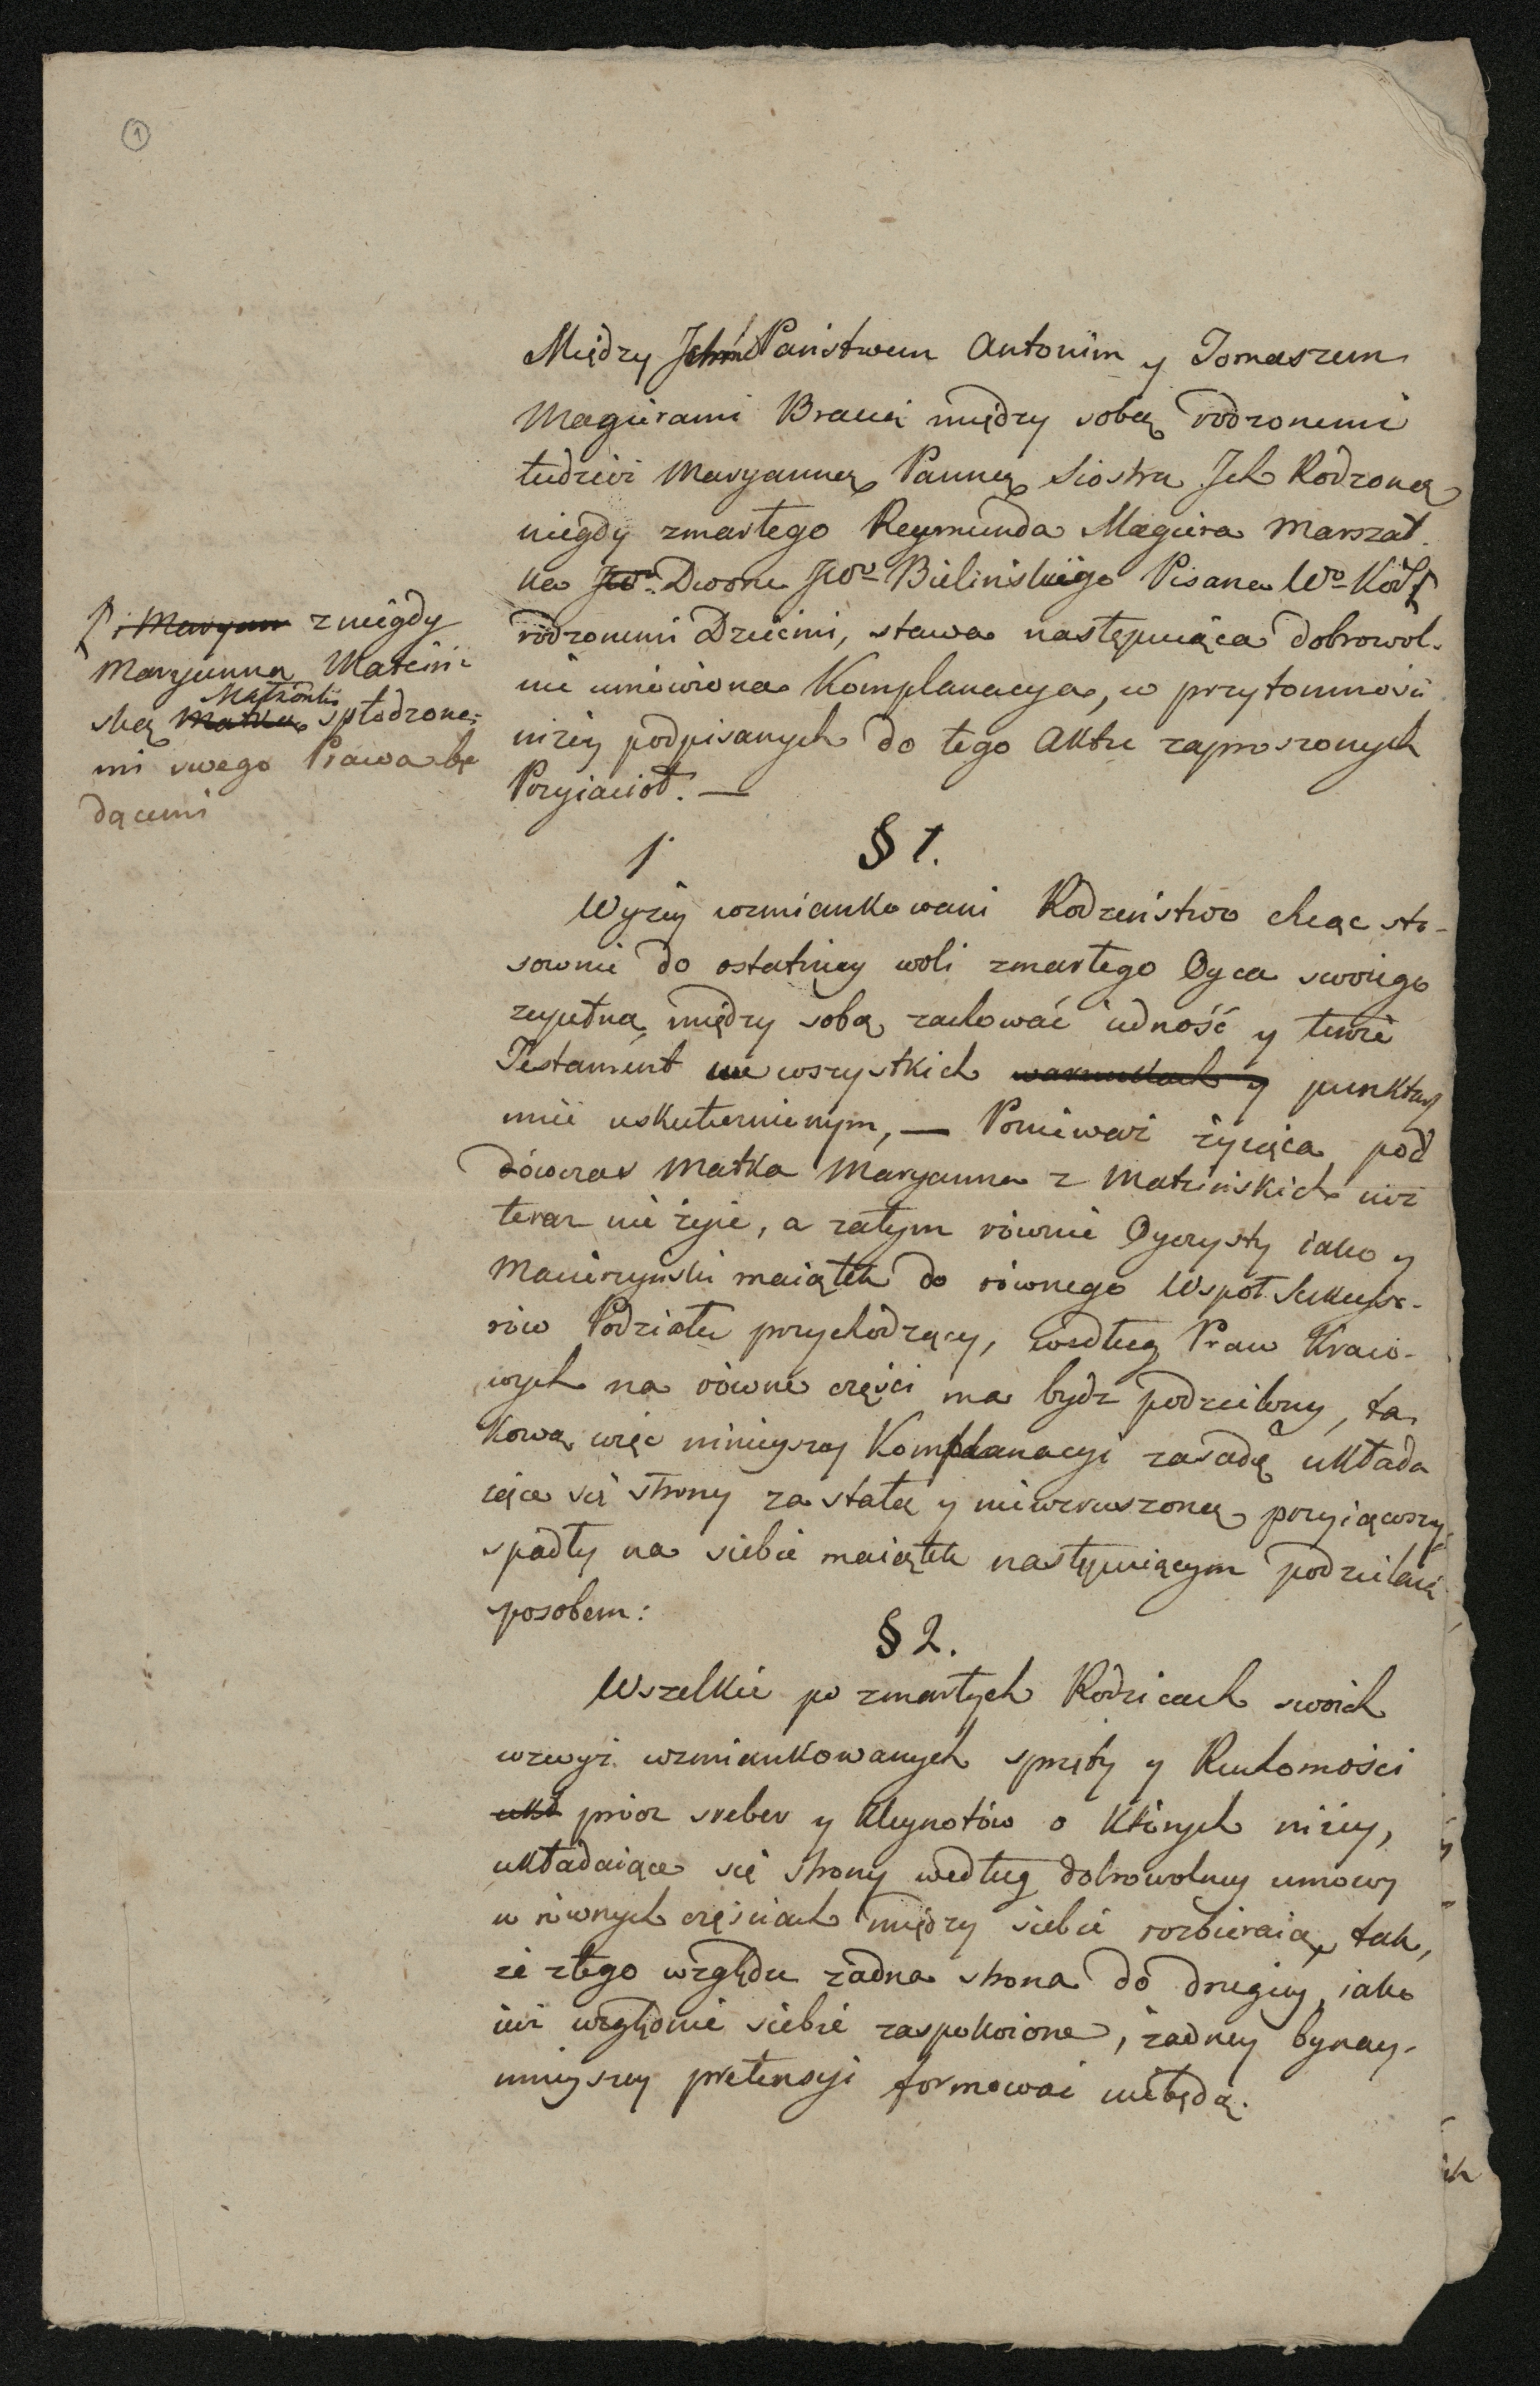 1
Między Ichm Państwem Antonim y Tomaszem
Magierami Braćia między sobą rodzonemi
tudzież Maryanną Panną Siostrą Ich Rodzoną
niegdy zmarłego Reymunda Magiera Marszał-
ka JWo Dworu JWo Bielinskiego Pisarza Wo Kor
rodzonemi Dziećmi, stawa następuiąca dobrowol-
nie umowiona Komplanacya, w przytomności
niżey podpisanych do tego Aktu zaproszonych
Przyiacioł. —
i Maryan z niegdy
Maryanną Matcin-
ską Matką Małżonki spłodzone-
mi swego Prawa bę
dącemi
§ 1.
Wyżey wzmiankowani Rodzeństwo chcąc sto-
sownie do ostatniey woli zmarłego Oyca swoiego
zupełną między sobą zachować iedność y tenże
Testament we wszystkich warunkach y punktach
mieć uskutecznionym, — Ponieważ żyiąca pod
dówczas Matka Maryanna z Matcinskich iuż
teraz nie żyie, a zatym równie Oyczysty iako y
Macierzynski maiątek do równego Wspoł Sukcesso-
rów Podziału przychodzący, według Praw Kraio-
wych na równe części ma bydz podzielony, ta-
kową więc ninieyszey Komplanacyi zasadę układa
iące się strony za stałą y niewzruszoną przyiąwszy,
spadły na siebie maiątek następuiącym podzielaią
sposobem:
§ 2.
Wszelkie po zmarłych Rodzicach swoich
wzwyż wzmiankowanych sprzęty y Ruchomości
ukł prócz sreber y kleynotów o których niżey,
układaiące się strony według dobrowolney umowy
w równych częściach między siebie rozbieraią, tak,
że z tego względu żadna strona do drugiey, iako
iuż względnie siebie zaspokoione, żadney bynay-
mnieyszey pretensyi formować niebędą.